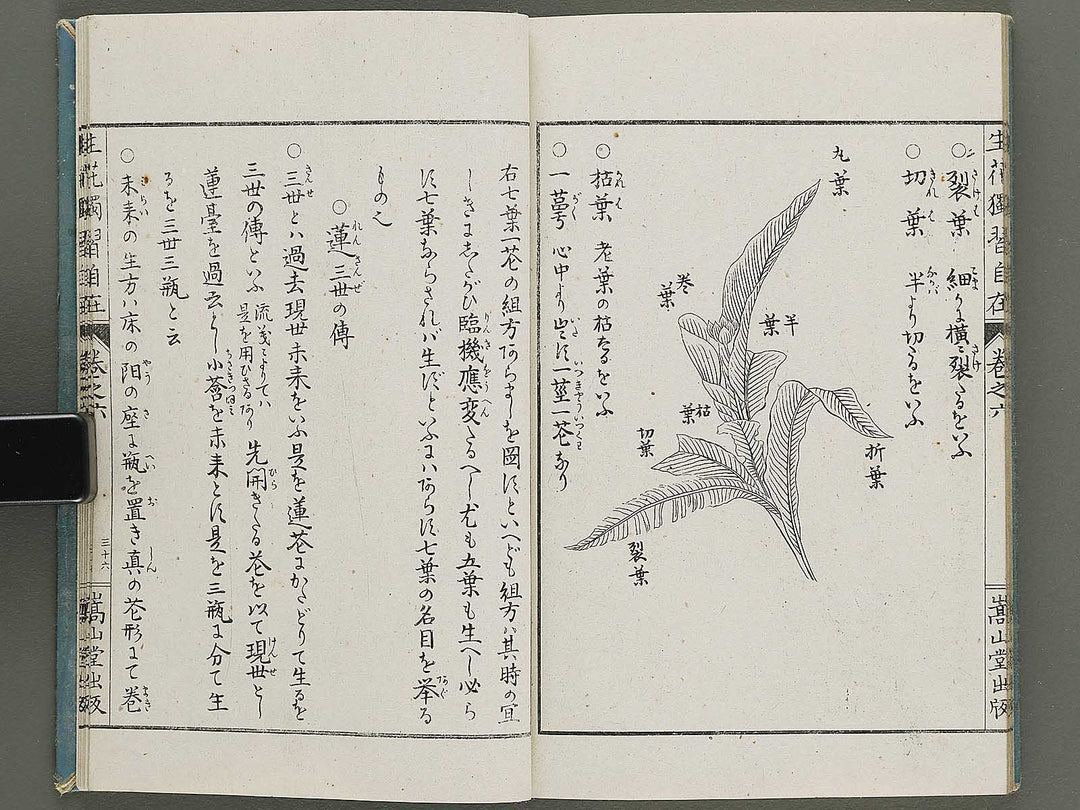 生花獨習自在 卷之六 嵩山堂出版
○裂葉 細かに横に裂たるをいふ
○切葉 半より切たるをいふ
丸葉
巻葉
半葉
枯葉
切葉
折葉
裂葉
○枯葉 老葉の枯たるをいふ
○一蕚 心中より出す一莖一花なり
右七葉一花の組方あらましを圖すといへども組方ハ其時の宜
しきにしたがひ臨機應変たるへし尤も五葉も生へし必ら
す七葉ならされバ生ずといふにハあらす七葉の名目を挙る
もの也
○蓮三世の傳
○三世とハ過去現世未来をいふ是を蓮花にかたどりて生るを
三世の傳といふ 流義によりてハ是を用ひざるあり 先開きたる花を以て現世とし
蓮臺を過去とし小莟を未来とす是を三瓶に分て生
るを三世三瓶と云
○未来の生方ハ床の陽の座に瓶を置き真の花形にて巻
生花獨習自在 卷之六 三十六 嵩山堂出版